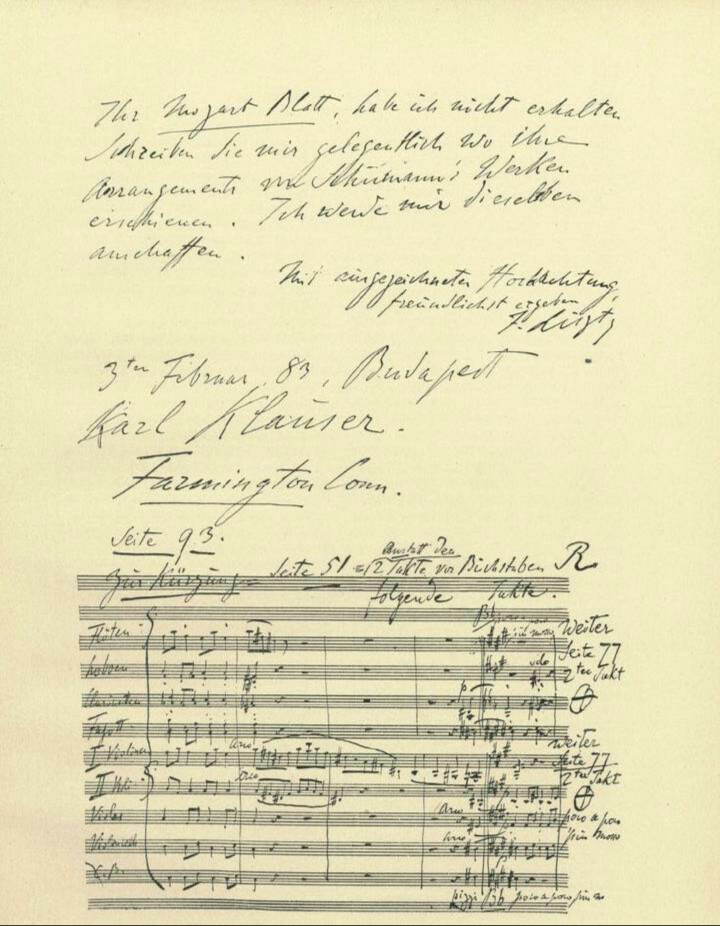 Ihr Mozart Blatt, habe ich nicht erhalten
Schreiben Sie mir gelegentlich wo ihre
Arrangements von Schumann's Werken
erschienen. Ich werde mir dieselben
anschaffen.
Mit ausgezeichneter Hochachtung,
freundlichst ergeben
F. Liszt
3ten Februar, 83, Budapest
Karl Klauser.
Farmington Conn.
Seite 93.
Zur Kürzung = Seite 51 = (2 Takte vor Buchstaben R
anstatt den
folgende Takte.
Flöten
Hoboen
Clarinetten
Fagott
I Violinen
II Viol
Violas
Violoncell
C.B.
arco
arco
arco
arco
solo
p
più mosso
Weiter
Seite 77
2ter Takt
Weiter
Seite 77
2ter Takt
poco a poco
più mosso
pizzi
poco a poco più mo